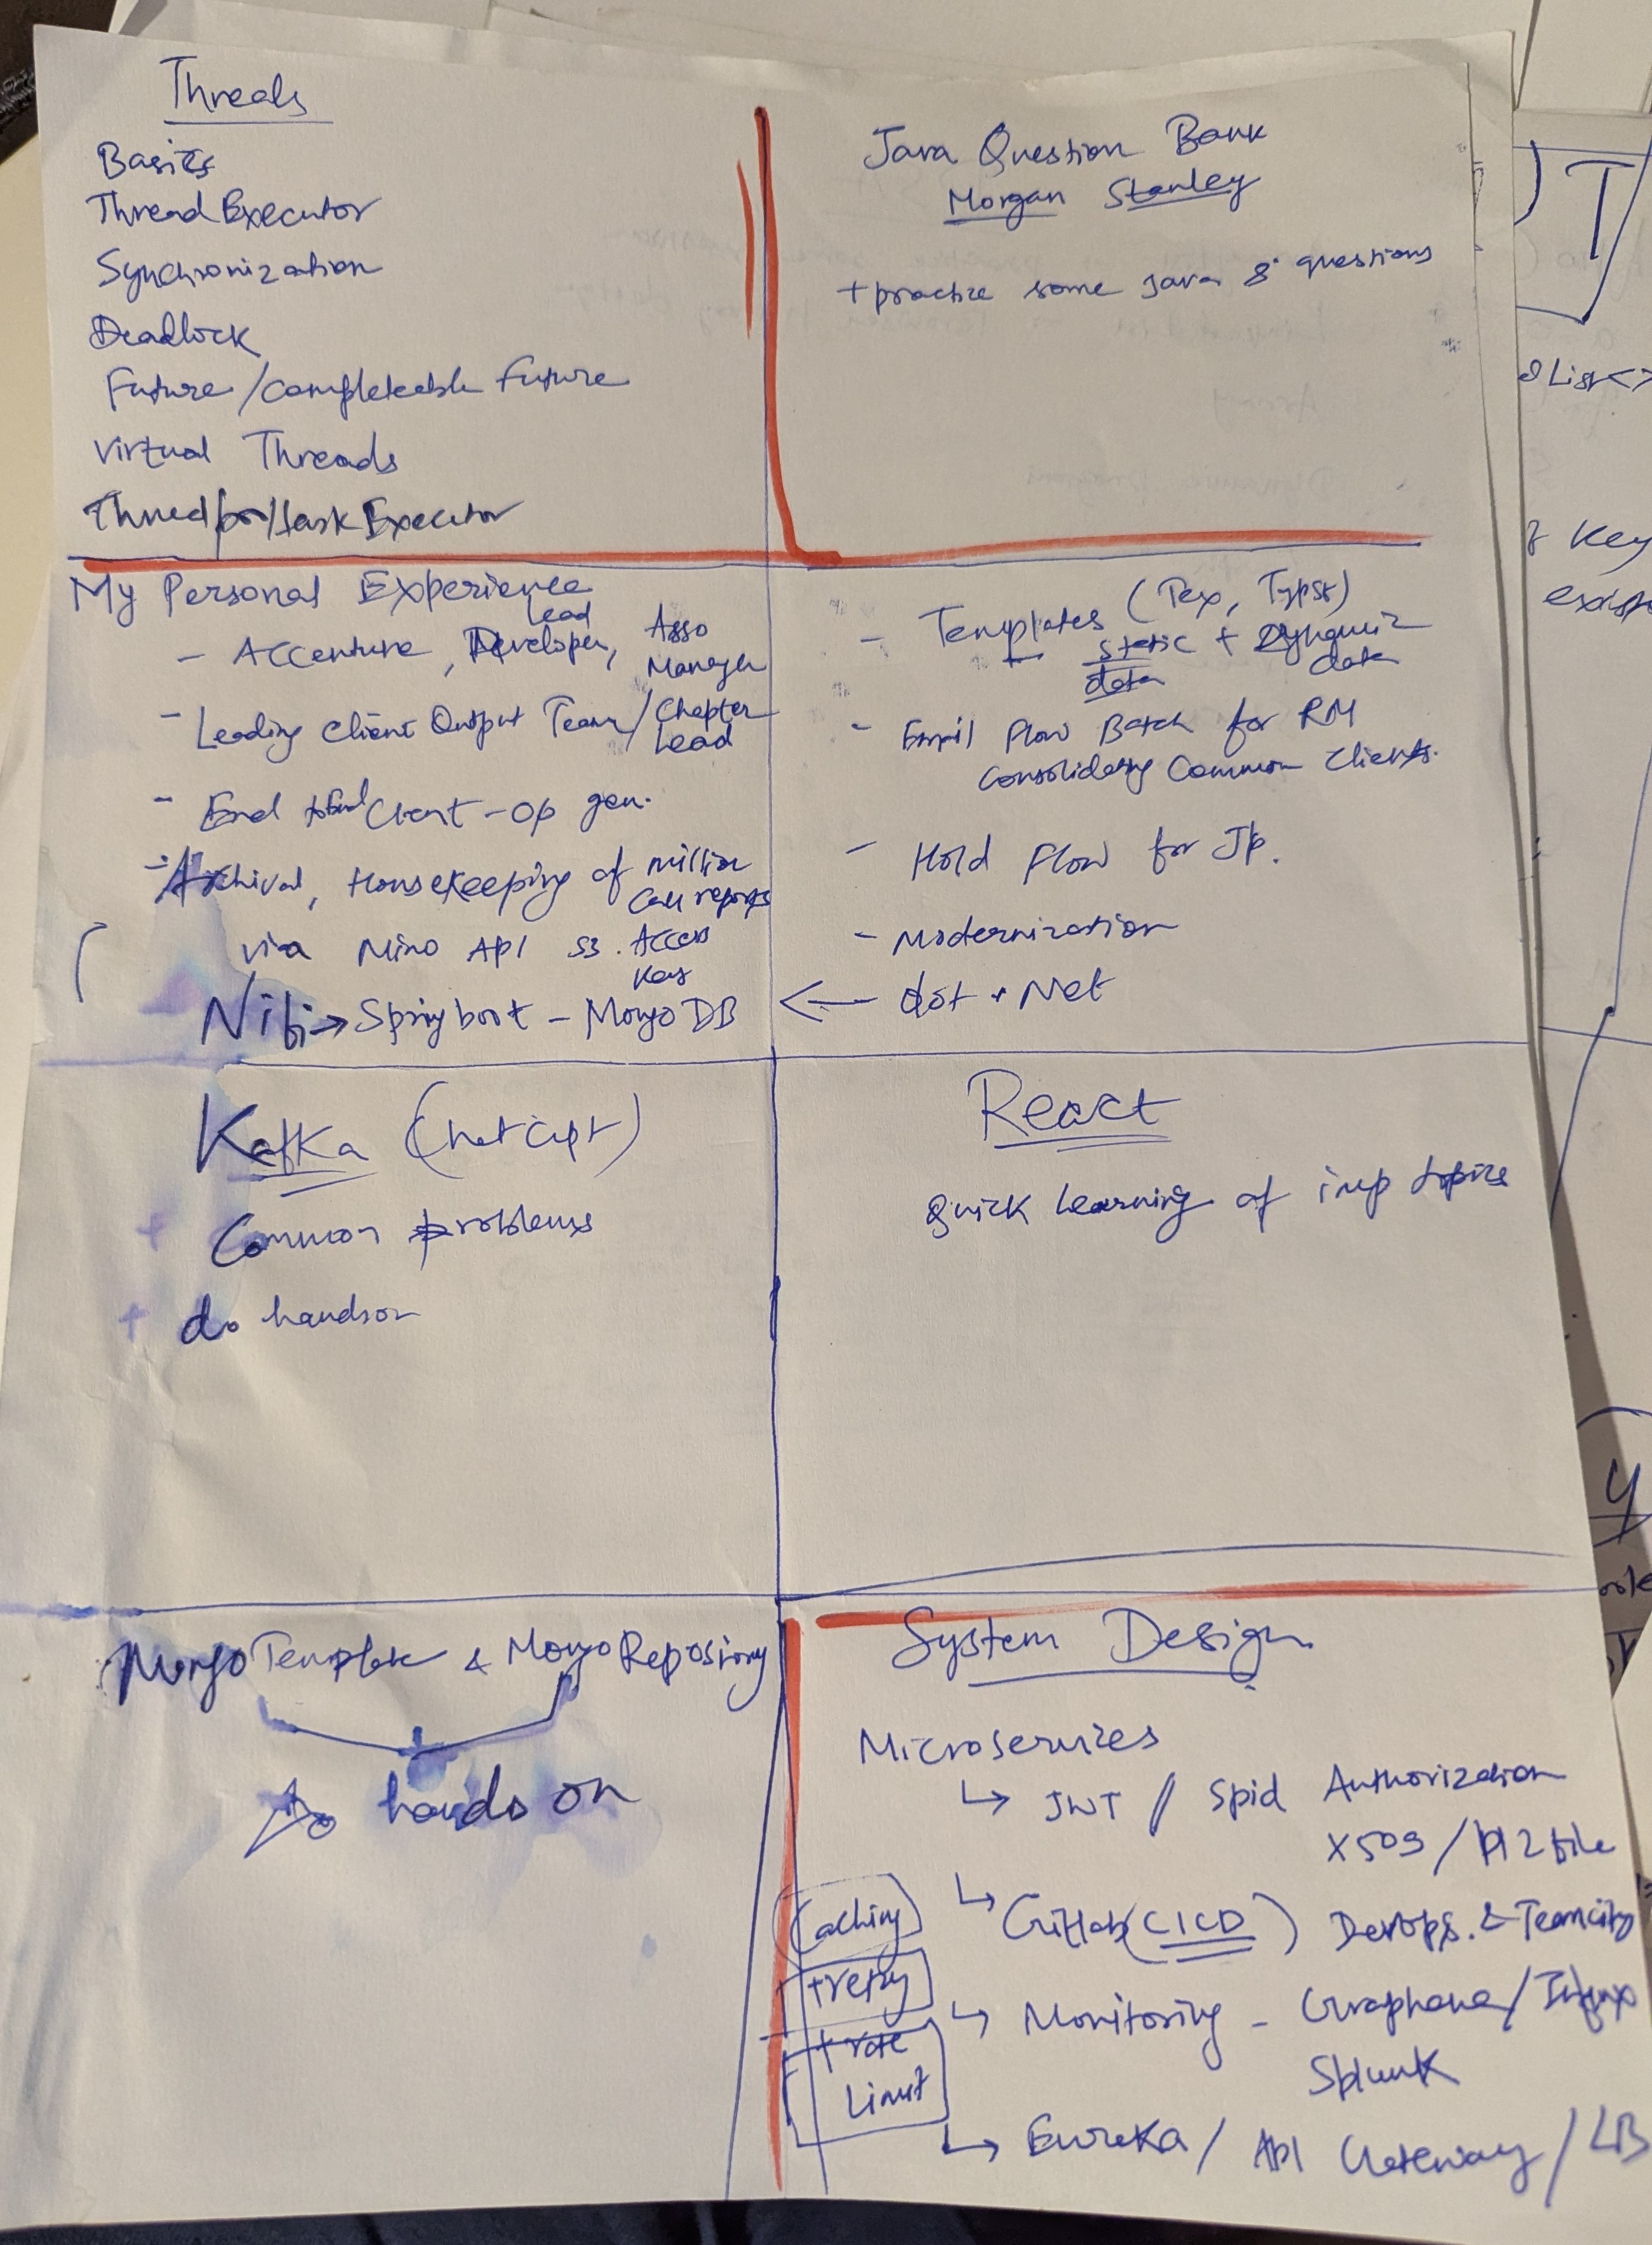 Threads
Basics
Thread Executor
Synchronization
Deadlock
Future / Completeable Future
Virtual Threads
Threadpooltask Executor
Java Question Bank
Morgan Stanley
+ practize some Java 8 questions
My Personal Experience
- Accenture, Lead Developer, Asso Manager
- Leading Client Output Team / Chapter Lead
- End to End Client - Op gen.
- Archival, Housekeeping of million Call reports
via Mino API S3. Access Key
Nifi → Springboot - MongoDB
- Templates (Tex, Typst)
static data + Dynamic data
- Email Flow Batch for RM
Consolidating Common Clients.
- Hold Flow for Jp.
- Modernization
← dot . Net
Kafka (Chatgpt)
+ Common problems
+ do handson
React
Quick learning of imp topics
MongoTemplate & MongoRepository
Do hands on
System Design
Microservices
↳ JWT / Spid Authorization
X509 / P12 file
↳ Gitlab (CICD) Devops. & Teamcity
↳ Monitoring - Graphana / Influx
Splunk
↳ Eureka / API Gateway / LB
Caching
+ retry
+ rate
Limit
T
List<>
Key
exist
y